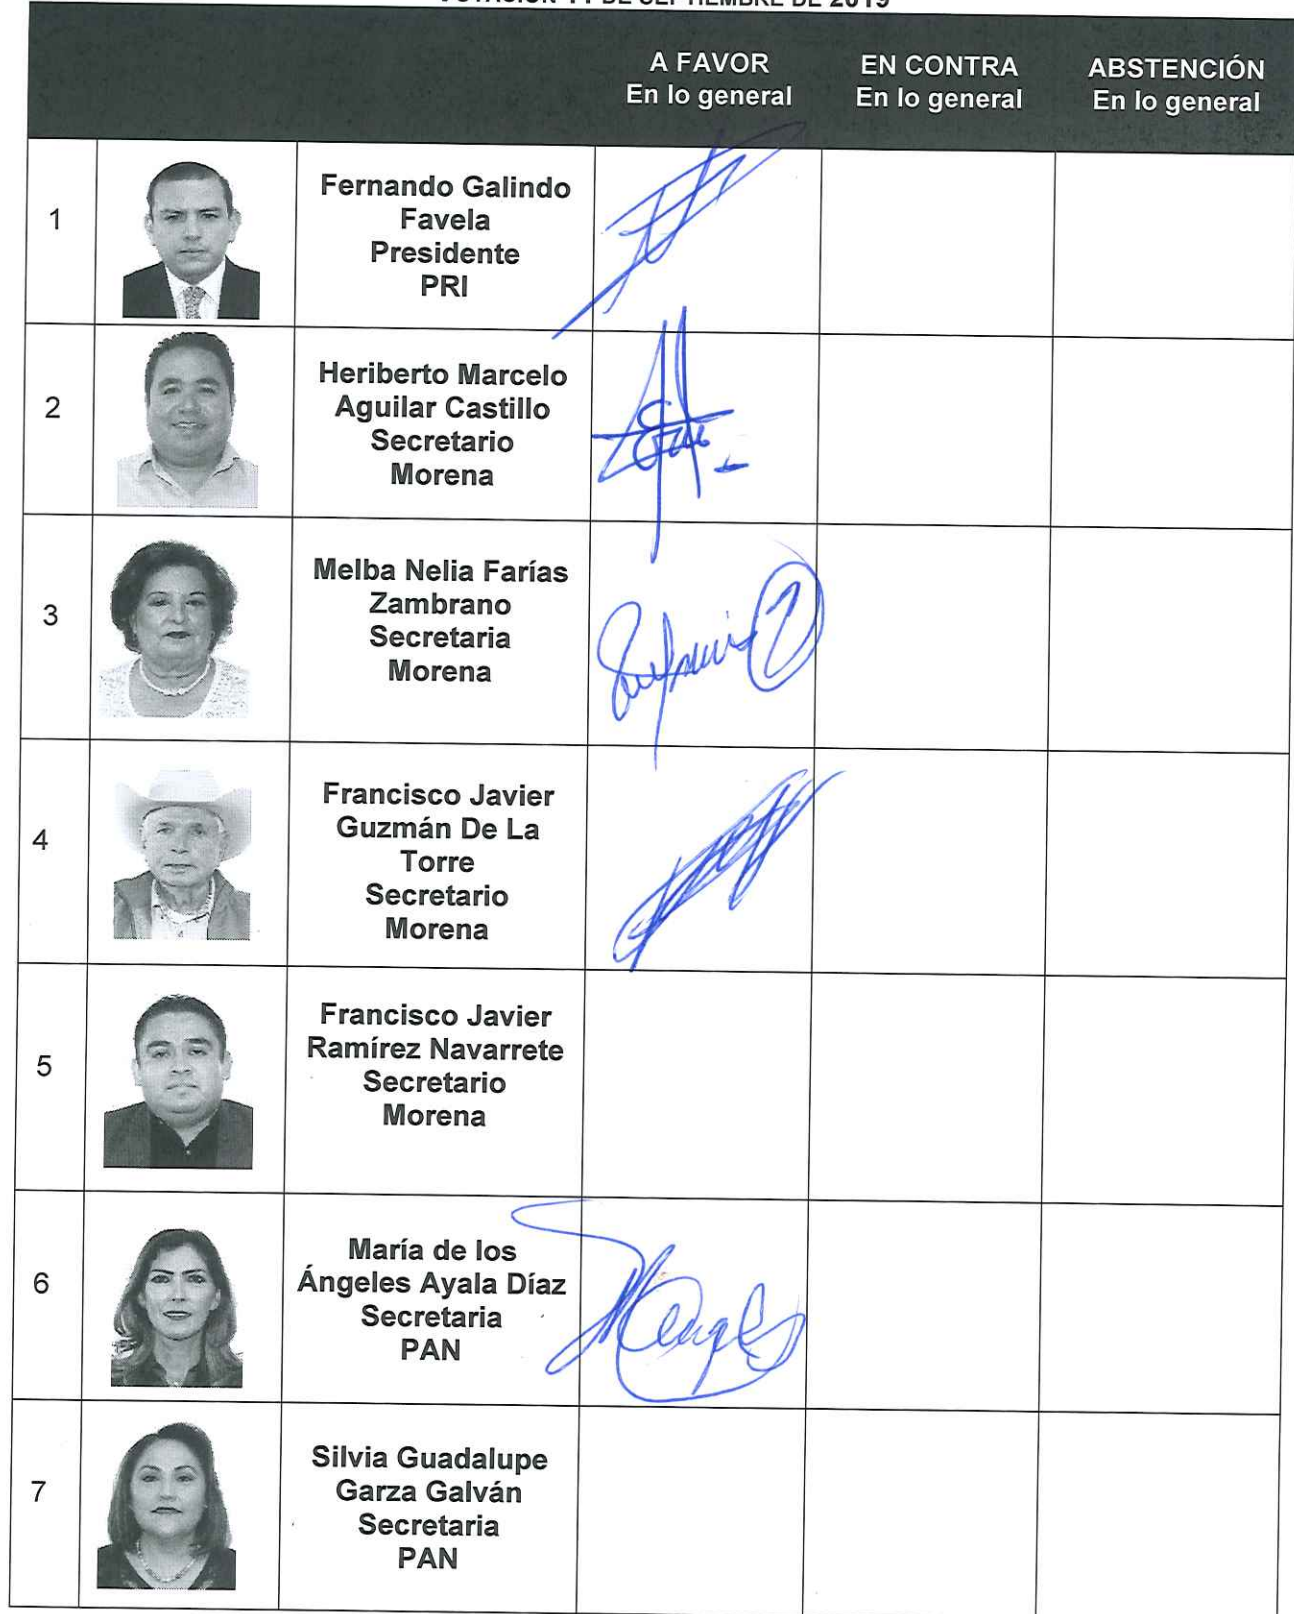 VOTACIÓN 11 DE SEPTIEMBRE DE 2019
A FAVOR
En lo general
EN CONTRA
En lo general
ABSTENCIÓN
En lo general
1
Fernando Galindo
Favela
Presidente
PRI
2
Heriberto Marcelo
Aguilar Castillo
Secretario
Morena
3
Melba Nelia Farías
Zambrano
Secretaria
Morena
4
Francisco Javier
Guzmán De La
Torre
Secretario
Morena
5
Francisco Javier
Ramírez Navarrete
Secretario
Morena
6
María de los
Ángeles Ayala Díaz
Secretaria
PAN
7
Silvia Guadalupe
Garza Galván
Secretaria
PAN